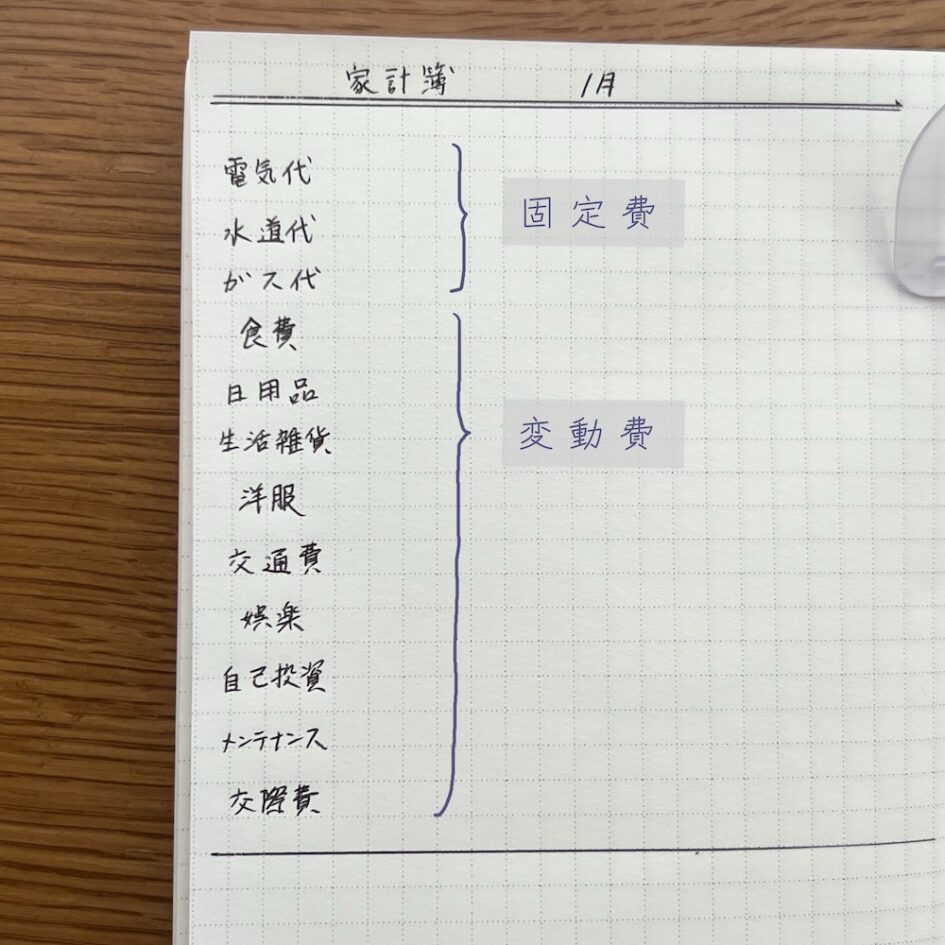 家計簿 1月
電気代
水道代
ガス代
固定費
食費
日用品
生活雑貨
洋服
交通費
娯楽
自己投資
メンテナンス
交際費
変動費